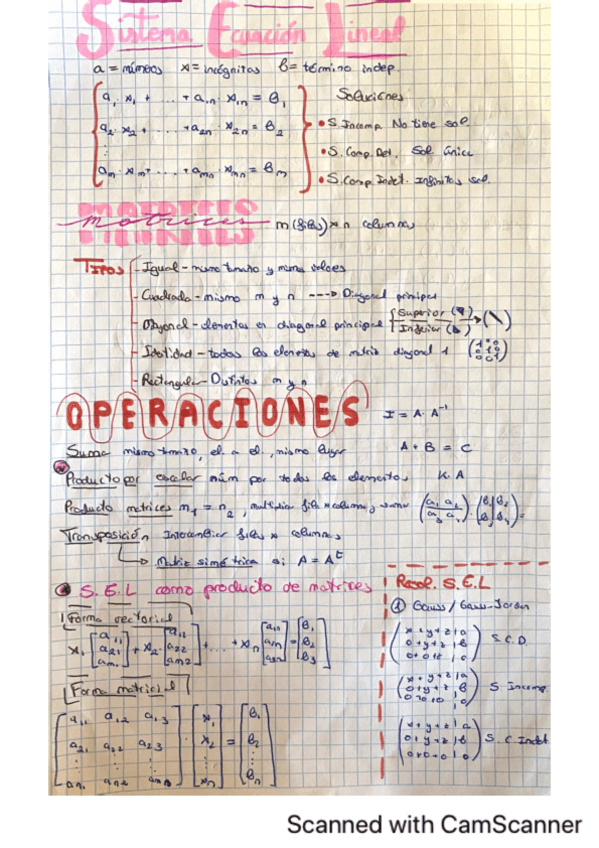 Sistema Ecuación Lineal
a = números x = incógnitas b = término indep.
a₁ · x₁ + ... + a₁ₙ · x₁ₙ = b₁
a₂ · x₂ + ... + a₂ₙ · x₂ₙ = b₂
⋮
aₘ · xₘ + ... + aₘₙ · xₘₙ = bₘ
Soluciones
• S. Incomp. No tiene sol.
• S. Comp. Det. Sol única
• S. Comp. Indet. Infinitas sol.
matrices m (filas) x n columnas
TIPOS
- Igual - mismo tamaño y mismos valores
- Cuadrada - mismo m y n ---> Diagonal principal
- Diagonal - elementos en diagonal principal
Superior
Inferior
- Identidad - todos los elementos de matriz diagonal 1
- Rectangular - Distintos m y n
OPERACIONES
I = A · A⁻¹
Suma mismo tamaño, el. a el., mismo lugar A + B = C
Producto por escalar núm por todos los elementos K · A
Producto matrices n₁ = n₂, multiplicar fila x columna, y sumar
Transposición Intercambiar filas x columnas
Matriz simétrica si A = Aᵗ
S.E.L como producto de matrices
Forma vectorial
Forma matricial
Resol. S.E.L
① Gauss / Gauss-Jordan
S.C.D.
S Incomp.
S.C. Indet.